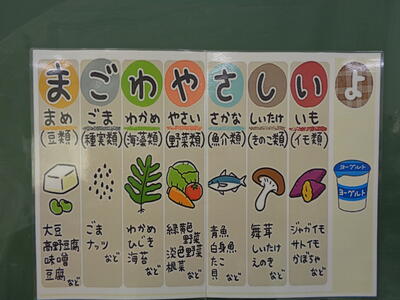 まごわやさしいよ
まめ ごま わかめ やさい さかな しいたけ いも
(豆類) (種実類) (海藻類) (野菜類) (魚介類) (きのこ類) (イモ類)
ヨーグルト
ヨーグルト
大豆
高野豆腐
味噌
豆腐など
ごま
ナッツ
など
わかめ
ひじき
海苔
など
緑黄色
野菜
淡色野菜
根菜
など
青魚
白身魚
たこ
貝など
舞茸
しいたけ
えのき
など
ジャガイモ
サトイモ
かぼちゃ
など